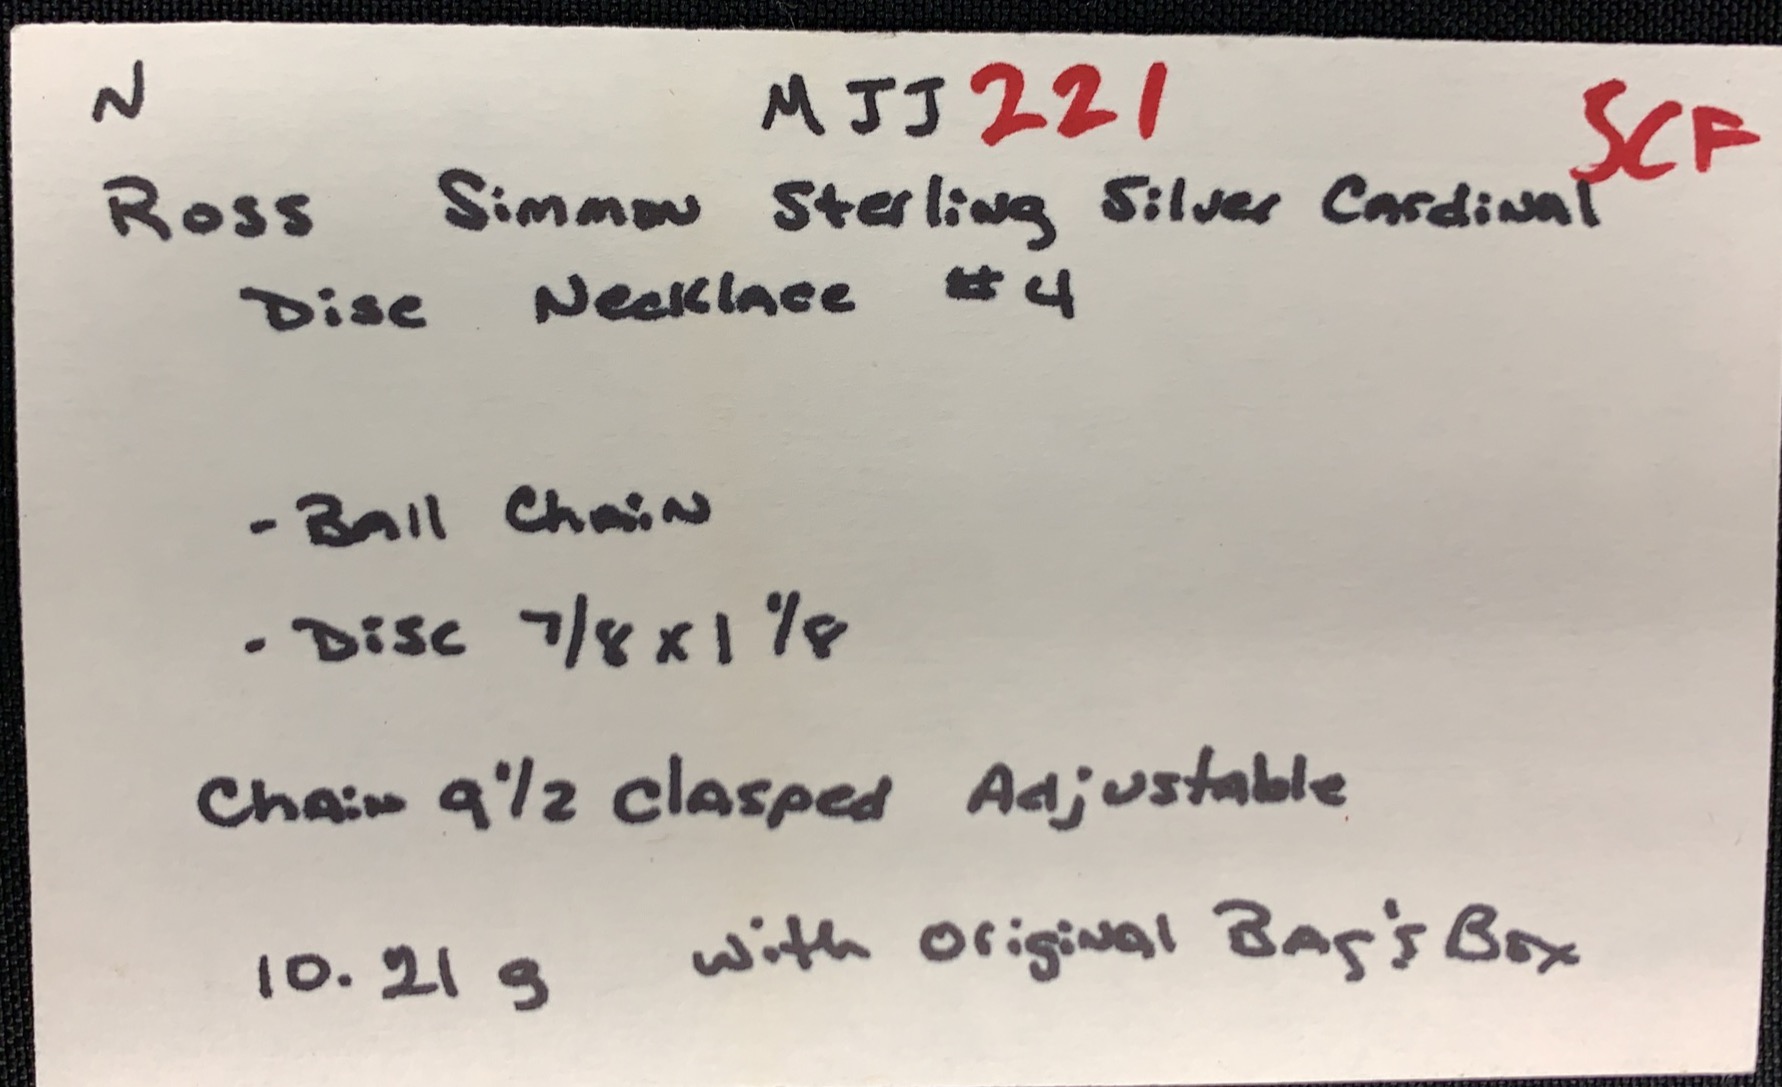 N MJJ 221 SCF
Ross Simmon Sterling Silver Cardinal
Disc Necklace #4
- Ball Chain
- Disc 7/8 x 1 1/8
Chain 9 1/2 clasped Adjustable
10.21 g with original Bag & Box